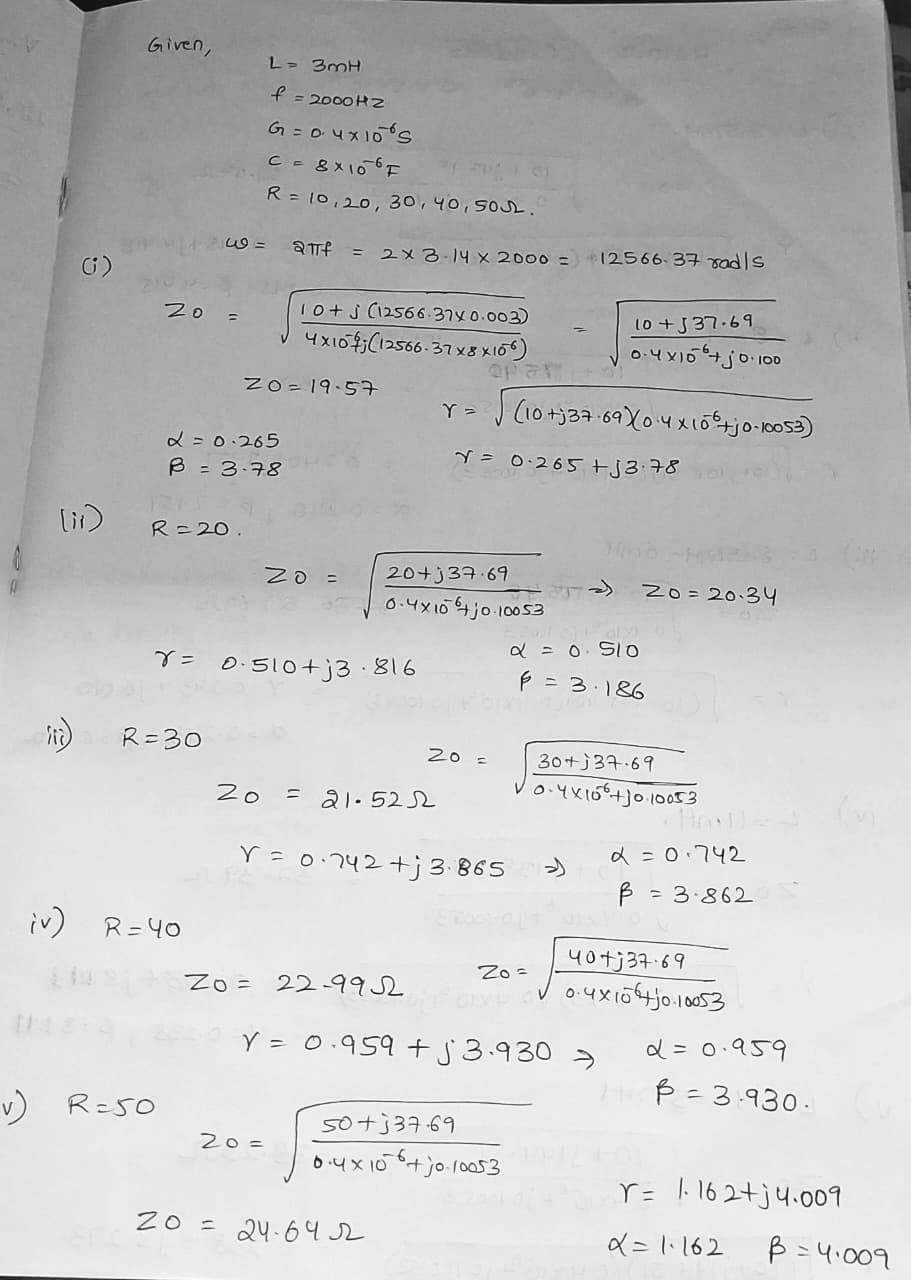 Given,
L = 3mH
f = 2000HZ
G = 0.4x10⁻⁶S
C = 8x10⁻⁶F
R = 10,20, 30, 40, 50Ω.
(i) ω = 2πf = 2x3.14x2000 = 12566.37 rad/s
Z0 = √(10+j(12566.37x0.003) / 4x10⁻⁶+j(12566.37x8x10⁻⁶)) = √(10+j37.69 / 0.4x10⁻⁶+j0.100)
Z0 = 19.57
γ = √(10+j37.69)(0.4x10⁻⁶+j0.10053)
α = 0.265
β = 3.78
γ = 0.265+j3.78
(ii) R = 20.
Z0 = √(20+j37.69 / 0.4x10⁻⁶+j0.10053) ⇒ Z0 = 20.34
γ = 0.510+j3.816
α = 0.510
β = 3.186
iii) R = 30
Z0 = √(30+j37.69 / 0.4x10⁻⁶+j0.10053)
Z0 = 21.52Ω
γ = 0.742+j3.865 ⇒ α = 0.742
β = 3.862
iv) R = 40
Z0 = 22.99Ω Z0 = √(40+j37.69 / 0.4x10⁻⁶+j0.10053)
γ = 0.959+j3.930 → α = 0.959
β = 3.930.
v) R = 50
Z0 = √(50+j37.69 / 0.4x10⁻⁶+j0.10053)
γ = 1.162+j4.009
Z0 = 24.64Ω
α = 1.162 β = 4.009